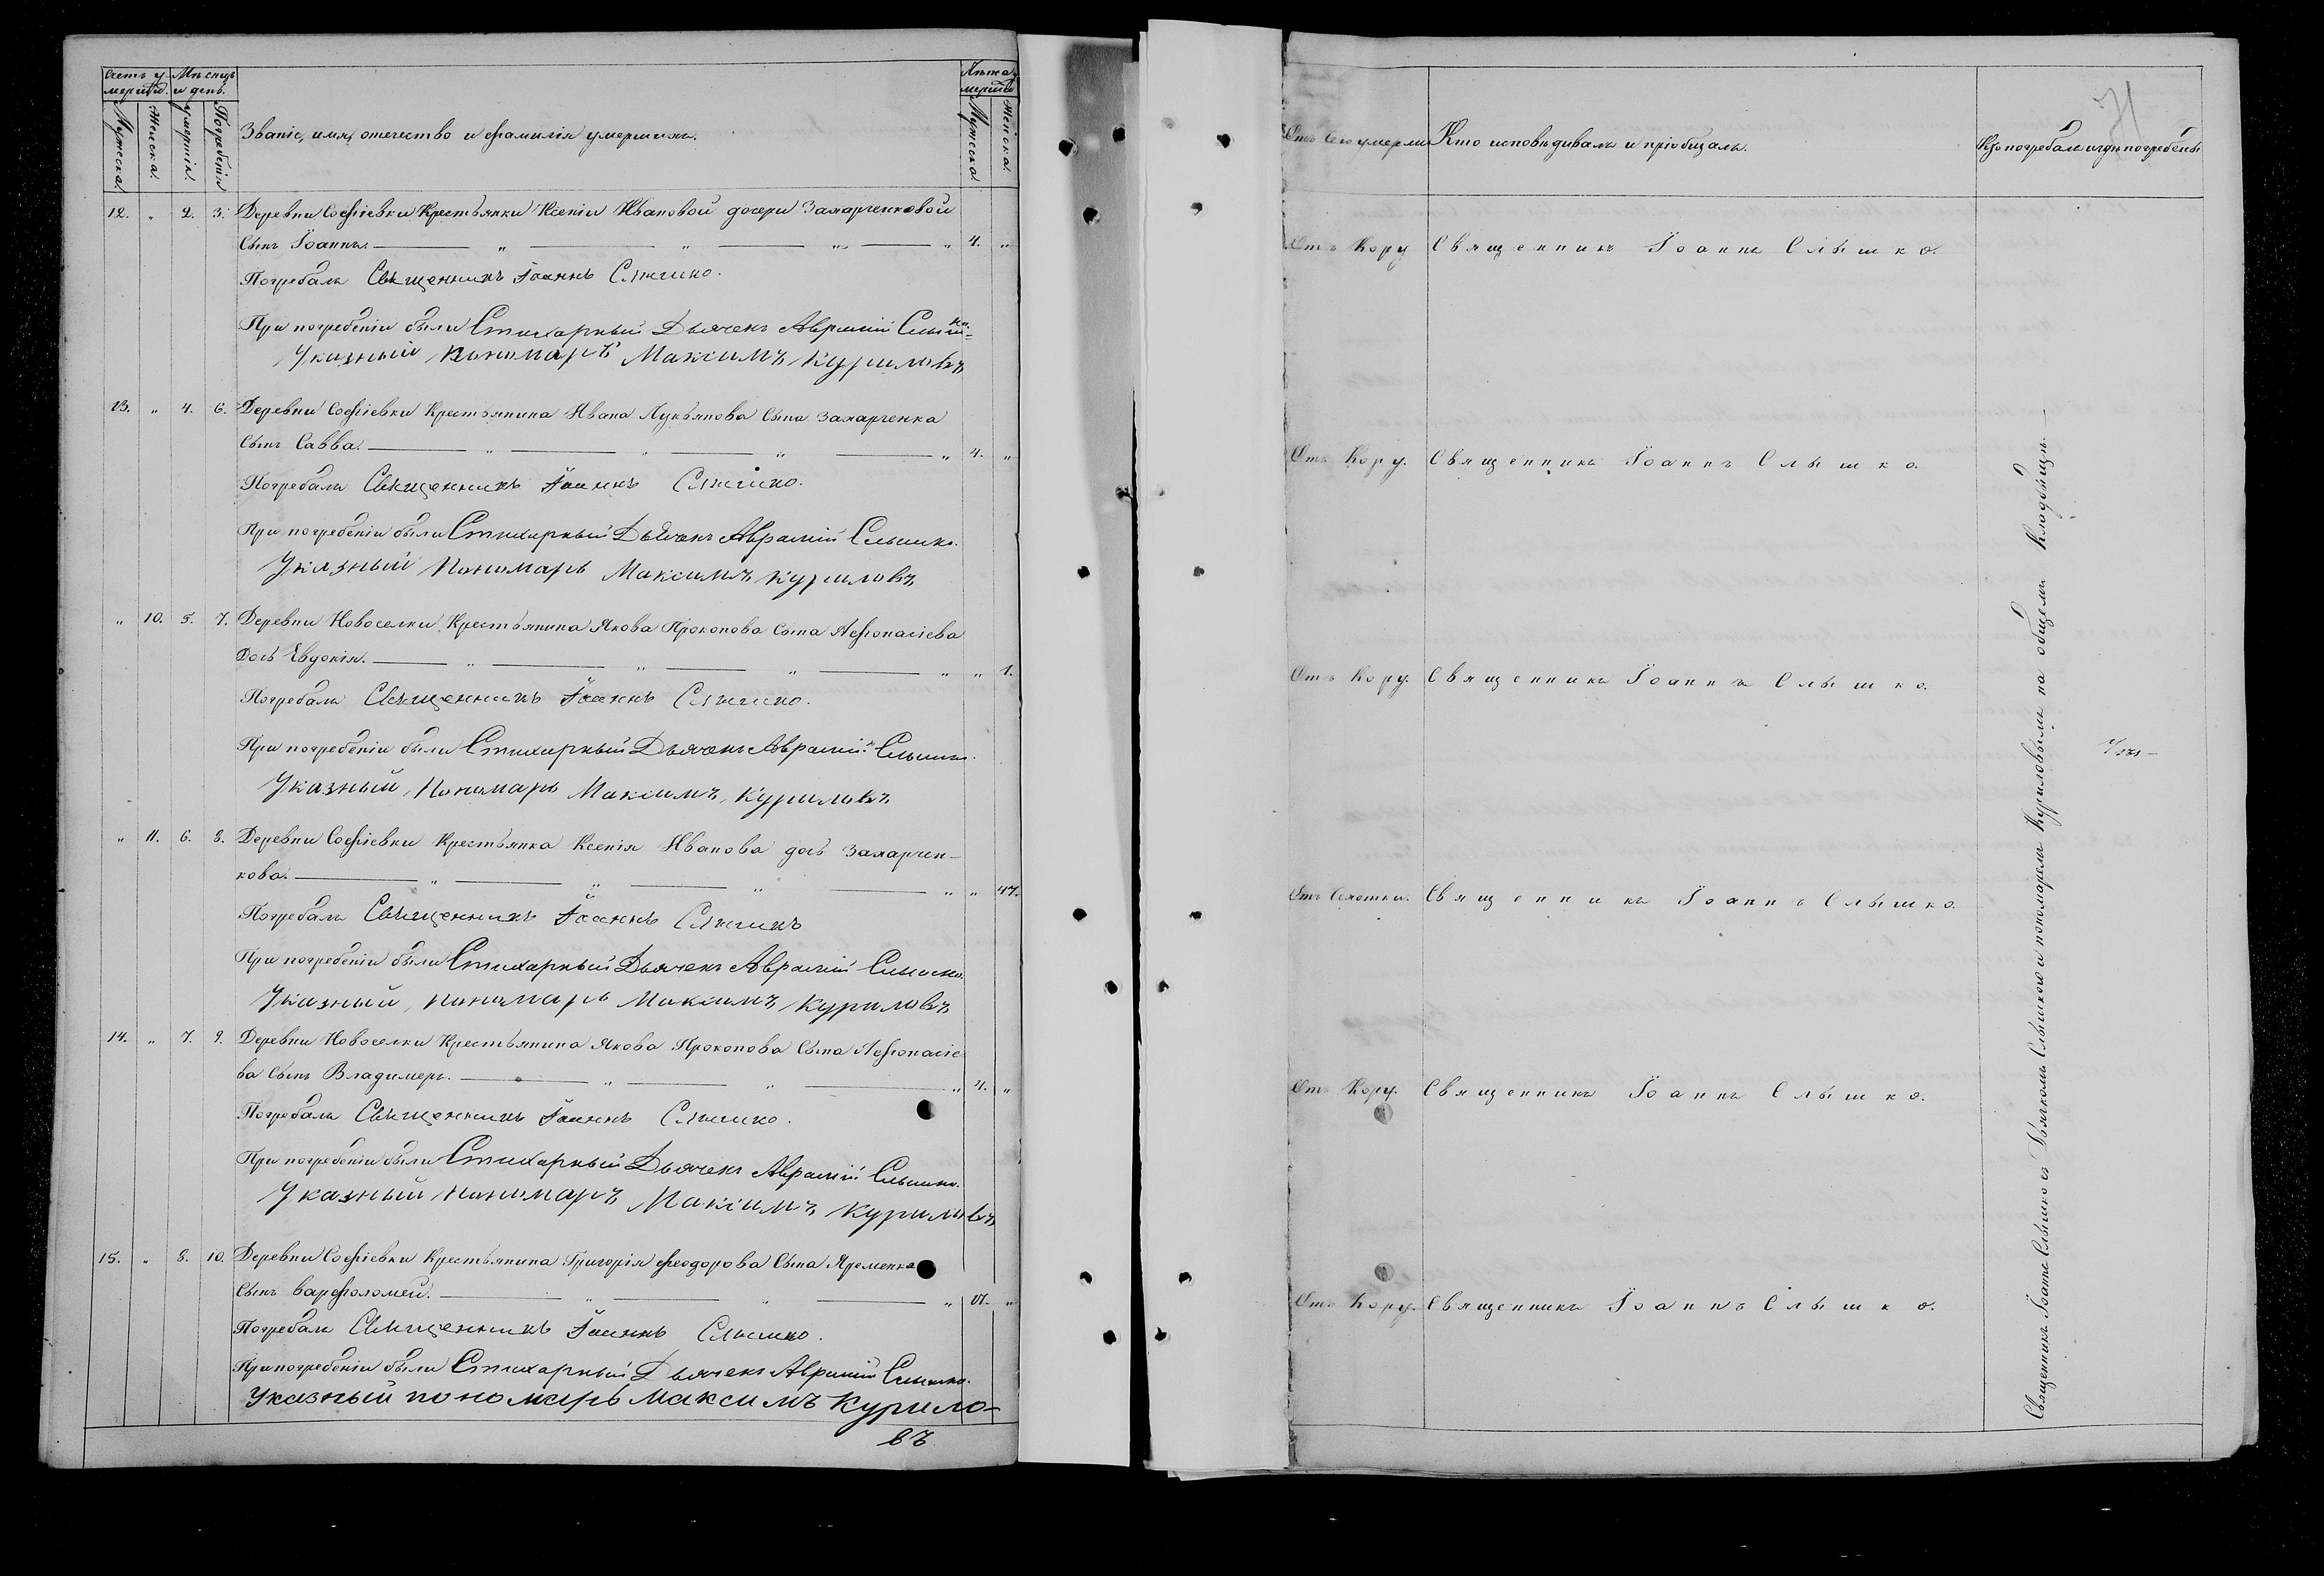 Счетъ у-
мершихъ.
Мѣсяцъ
и день.
Званіе, имя, отечество и фамилія умершихъ.
Лѣта у-
мершихъ
Мужеска.
Женска.
Смерти.
Погребенія
Мужеска
Женска.
12. „ 2. 3. Деревни Софіевки Крестьянки Ксеніи Ивановой дочери Захарченковой
Сынъ Іоаннъ. „ „ „ „ 4. „
Погребалъ Священникъ Іоаннъ Слышко.
При погребеніи были Стихарный Дьячекъ Аврамій Слышко.
Указный Пономарь Максимъ Куриловъ
13. „ 4. 6. Деревни Софіевки Крестьянина Ивана Лукьянова Сына Захарченка
Сынъ Савва. „ „ „ „ 4. „
Погребалъ Священникъ Іоаннъ Слышко.
При погребеніи были Стихарный Дьячекъ Аврамій Слышко.
Указный Пономарь Максимъ Куриловъ
„ 10. 5. 7. Деревни Новоселки Крестьянина Якова Прокопова Сына Афонасіева
Дочь Евдокія. „ „ „ „ „ 1.
Погребалъ Священникъ Іоаннъ Слышко.
При погребеніи были Стихарный Дьячекъ Аврамій Слышко.
Указный Пономарь Максимъ Куриловъ
„ 11. 6. 8. Деревни Софіевки Крестьянка Ксенія Иванова дочь Захарчен-
кова. „ „ „ „ „ 47.
Погребалъ Священникъ Іоаннъ Слышко
При погребеніи были Стихарный Дьячекъ Аврамій Слышко.
Указный Пономарь Максимъ Куриловъ
14. „ 7. 9. Деревни Новоселки Крестьянина Якова Прокопова Сына Афонасіе
ва Сынъ Владимеръ. „ „ „ 4. „
Погребалъ Священникъ Іоаннъ Слышко.
При погребеніи были Стихарный Дьячекъ Аврамій Слышко.
Указный Пономарь Максимъ Куриловъ
15. „ 8. 10. Деревни Софіевки Крестьянина Григорія Феодорова Сына Яременка
Сынъ Варфоломей. „ „ „ „
Погребалъ Священникъ Іоаннъ Слышко.
При погребеніи были Стихарный Дьячекъ Аврамій Слышко.
Указный пономарь Максимъ Курило-
въ
71
Отъ чего умерли
Кто исповѣдивалъ и пріобщалъ.
Кто погребалъ и гдѣ погребены
Отъ Кору Священникъ Іоаннъ Слышко.
Отъ Кору. Священникъ Іоаннъ Слышко.
Отъ Кору. Священникъ Іоаннъ Слышко.
Отъ Сухотки. Священникъ Іоаннъ Слышко.
Отъ Кору. Священникъ Іоаннъ Слышко.
Отъ Кору. Священникъ Іоаннъ Слышко.
Священникъ Іоаннъ Слышко съ Дьячкомъ Слышкою и пономаремъ Куриловымъ на общемъ Кладбищѣ.